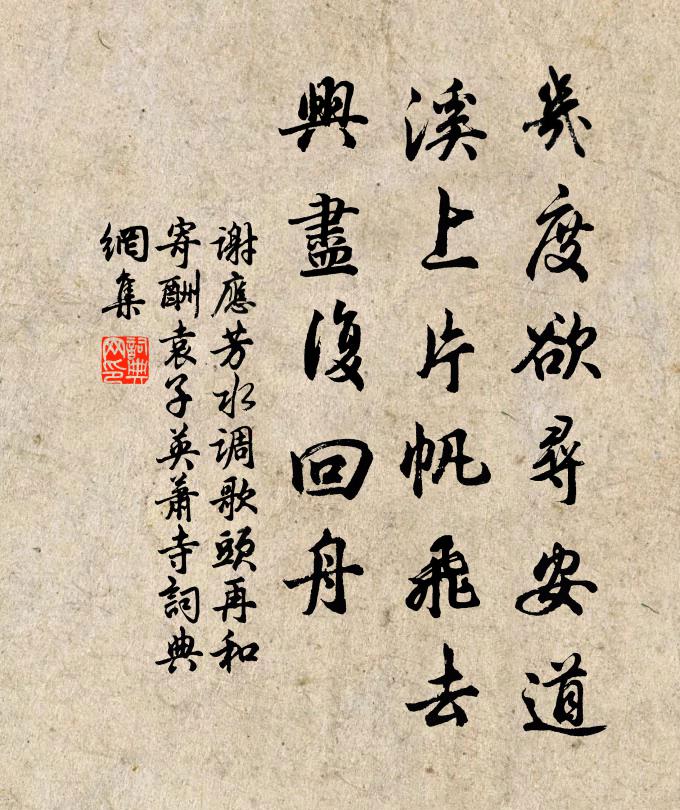 幾度欲尋安道
溪上片帆飛去
興盡復回舟
谢應芳水调歌頭再和
寄酬袁子英萧寺詞典
網集
詞典
网印